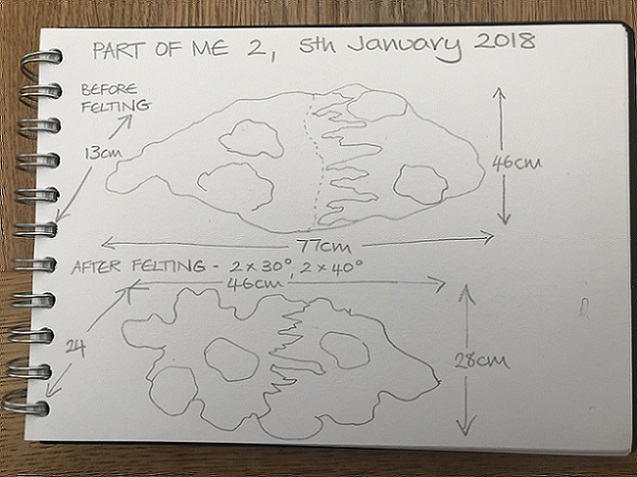 PART OF ME 2, 5th January 2018
BEFORE
FELTING
13cm
46cm
77cm
AFTER FELTING - 2 x 30°, 2 x 40°
46cm
24
28cm